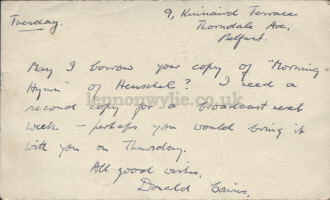 Tuesday.
9, Kinnaird Terrace
Thorndale Ave,
Belfast.
May I borrow your copy of "Morning
Hymn" of Henschel? I need a
second copy for a broadcast next
week – perhaps you would bring it
with you on Thursday.
All good wishes,
Donald Cairns.
lennonwylie.co.uk